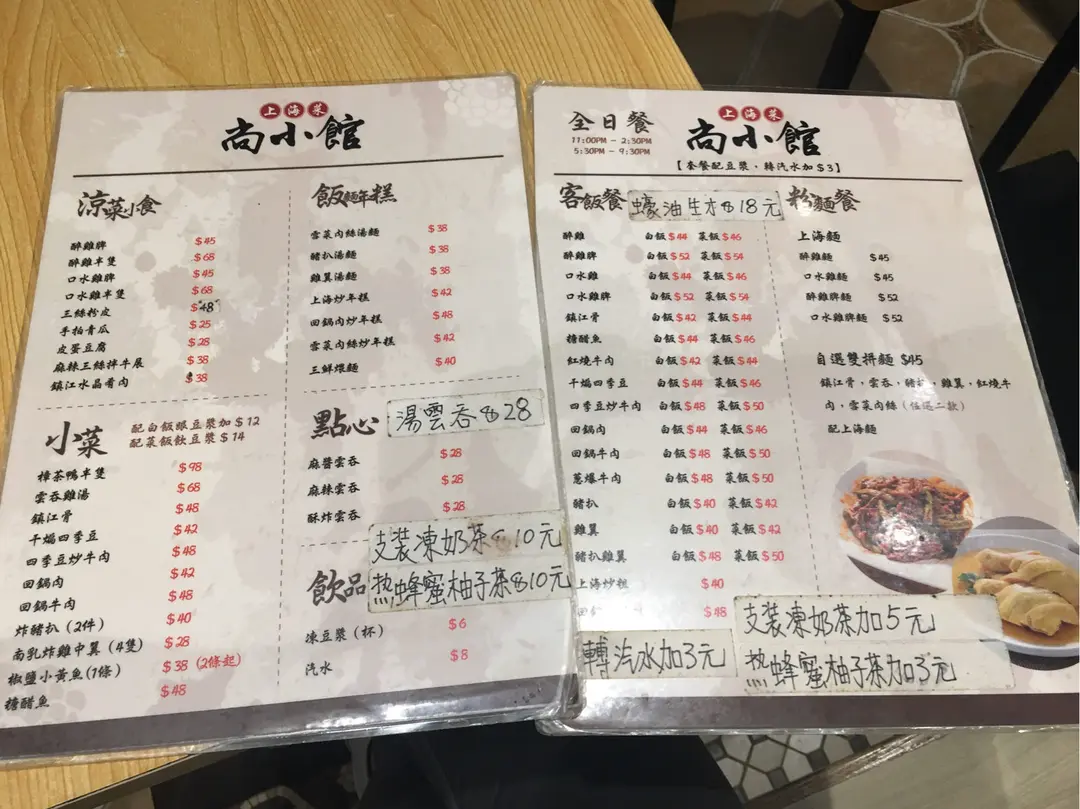 上海菜
尚小館
涼菜小食
醉雞脾 $45
醉雞半隻 $68
口水雞脾 $45
口水雞半隻 $68
三絲粉皮 $48
手拍青瓜 $25
皮蛋豆腐 $28
麻辣三絲拌牛展 $38
鎮江水晶肴肉 $38
小菜
配白飯跟豆漿加 $12
配菜飯飲豆漿 $14
樟茶鴨半隻 $98
雲吞雞湯 $68
鎮江骨 $48
干煸四季豆 $42
四季豆炒牛肉 $48
回鍋肉 $42
回鍋牛肉 $48
炸豬扒 (2件) $40
南乳炸雞中翼 (4隻) $28
椒鹽小黃魚(1條) $38 (2條起)
糖醋魚 $48
飯麵年糕
雪菜肉絲湯麵 $38
豬扒湯麵 $38
雞翼湯麵 $38
上海炒年糕 $42
回鍋肉炒年糕 $48
雪菜肉絲炒年糕 $42
三鮮煨麵 $40
點心
湯雲吞$28
麻醬雲吞 $28
麻辣雲吞 $28
酥炸雲吞 $28
飲品
支裝凍奶茶$10元
热蜂蜜柚子茶$10元
凍豆漿 (杯) $6
汽水 $8
全日餐
11:00PM - 2:30PM
5:30PM - 9:30PM
上海菜
尚小館
【套餐配豆漿，轉汽水加$3】
客飯餐
蠔油生才$18元
醉雞 白飯$44 菜飯$46
醉雞脾 白飯$52 菜飯$54
口水雞 白飯$44 菜飯$46
口水雞脾 白飯$52 菜飯$54
鎮江骨 白飯$42 菜飯$44
糖醋魚 白飯$44 菜飯$46
紅燒牛肉 白飯$42 菜飯$44
干煸四季豆 白飯$44 菜飯$46
四季豆炒牛肉 白飯$48 菜飯$50
回鍋肉 白飯$44 菜飯$46
回鍋牛肉 白飯$48 菜飯$50
蔥爆牛肉 白飯$48 菜飯$50
豬扒 白飯$40 菜飯$42
雞翼 白飯$40 菜飯$42
豬扒雞翼 白飯$48 菜飯$50
上海炒 $40
回 $48
轉汽水加3元
粉麵餐
上海麵
醉雞麵 $45
口水雞麵 $45
醉雞脾麵 $52
口水雞脾麵 $52
自選雙拼麵 $45
鎮江骨，雲吞，豬扒，雞翼，紅燒牛
肉，雪菜肉絲 (任選二款)
配上海麵
支裝凍奶茶加5元
热蜂蜜柚子茶加3元